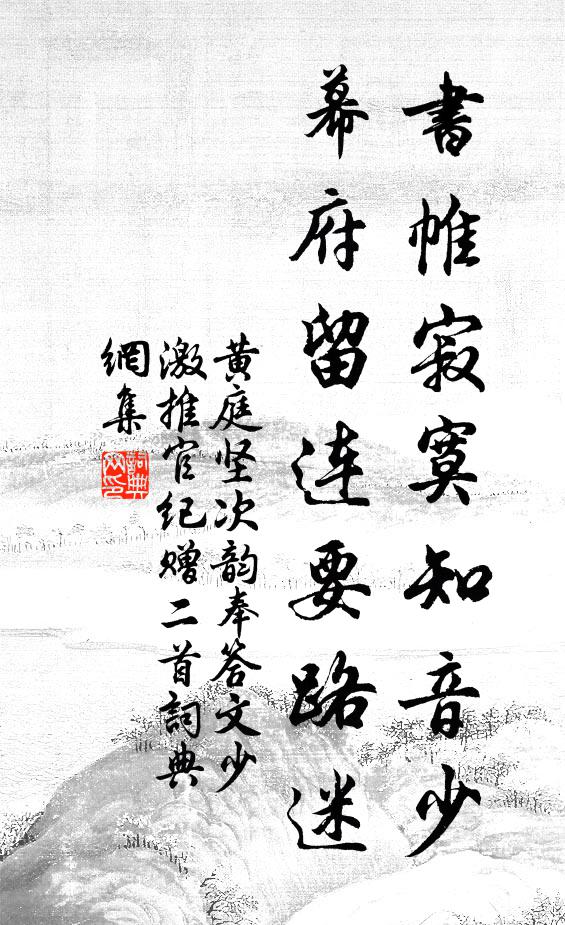 書帷寂寞知音少
幕府留连要路迷
黄庭坚次韵奉答文少
激推官纪赠二首詞典
網集
詞典